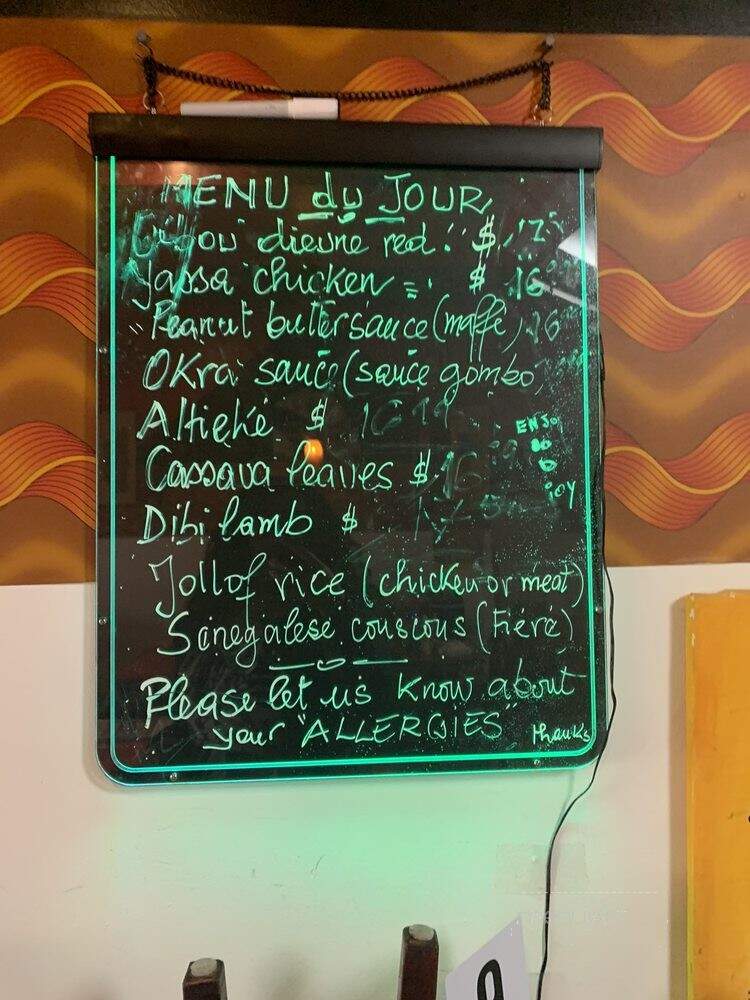 MENU du JOUR
dieune red: $ 17
Yassa chicken = $ 16
Peanut butter sauce (maffe) 16
OKra sauce (sauce gombo)
Altieke $ 16
Cassava leaves $ 16
Dibi lamb $
Jollof rice (chicken or meat)
Senegalese couscous (Fiéré)
Please let us know about
your "ALLERGIES" thanks
ENJOY
joy